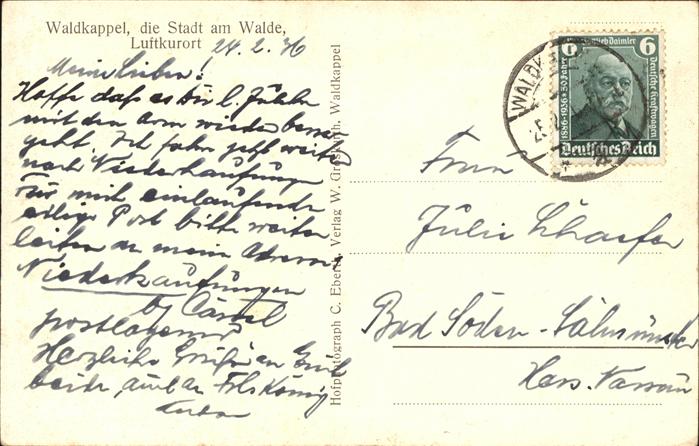 Waldkappel, die Stadt am Walde,
Luftkurort 24.2.36
Meine Lieben!
Hoffe daß es bei l. Julchen
mit dem Arm wieder besser
geht. Ich fahre jetzt weiter
nach Niederkaufungen
Für mich einlaufende
eilige Post bitte weiter
leiten an meine Adresse
Niederkaufungen
by Cassel
postlagernd
Herzliche Grüße an Euch
beide, auch an
Hofphotograph C. Eberth, Verlag W. Vaupel, Waldkappel
WALDK
6 Daimler 6
1886-1936 50 Jahre
Deutsche Kraftwagen
Deutsches Reich
Frau
Julie Schaefer
Bad Soden-Salmünster
Hess. Nassau